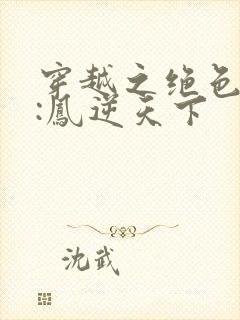 穿越之绝色
:凰逆天下
沈武